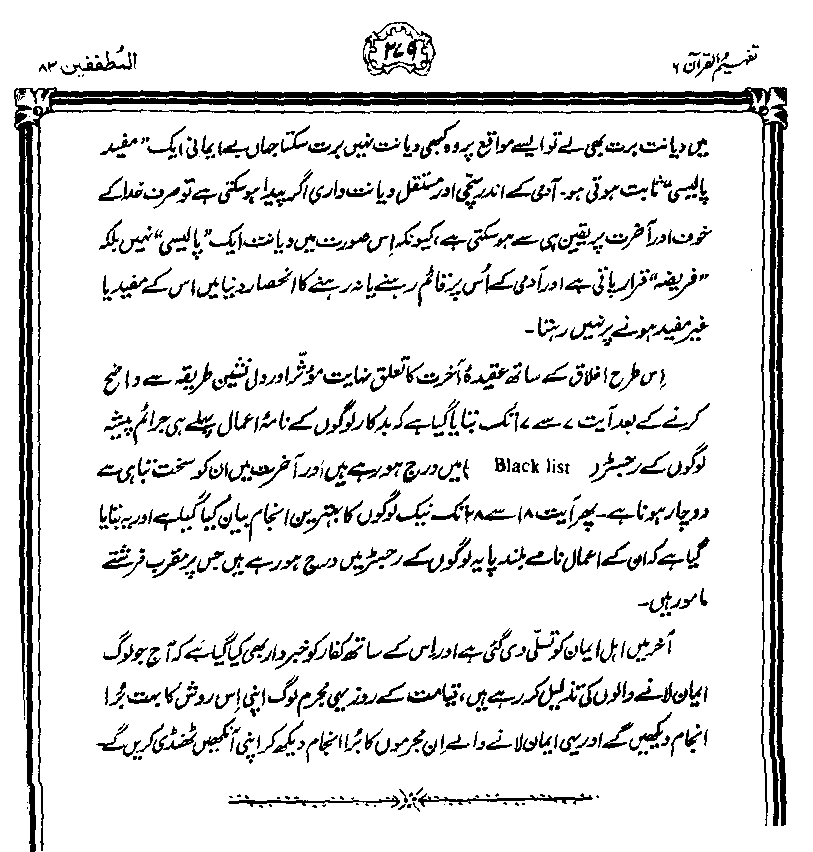 تفہیم القرآن ۶
۲۷۹
المُطففین ۸۳
میں دیانت برت بھی لے تو ایسے مواقع پر وہ کبھی دیانت نہیں برت سکتا جہاں بے ایمانی ایک ”مفید
پالیسی“ ثابت ہوتی ہو۔ آدمی کے اندر سچی اور مستقل دیانت داری اگر پیدا ہو سکتی ہے تو صرف خدا کے
خوف اور آخرت پر یقین ہی سے ہو سکتی ہے، کیونکہ اِس صورت میں دیانت ایک ”پالیسی“ نہیں بلکہ
”فریضہ“ قرار پاتی ہے اور آدمی کے اُس پر قائم رہنے یا نہ رہنے کا انحصار دنیا میں اس کے مفید یا
غیر مفید ہونے پر نہیں رہتا۔
اِس طرح اخلاق کے ساتھ عقیدۂ آخرت کا تعلق نہایت مؤثّر اور دل نشین طریقہ سے واضح
کرنے کے بعد آیت ۷ سے ۱۷ تک بتایا گیا ہے کہ بدکار لوگوں کے نامۂ اعمال پہلے ہی جرائم پیشہ
لوگوں کے رجسٹر (Black list) میں درج ہو رہے ہیں اور آخرت میں ان کو سخت تباہی سے
دوچار ہونا ہے۔ پھر آیت ۱۸ سے ۲۸ تک نیک لوگوں کا بہترین انجام بیان کیا گیا ہے اور یہ بتایا
گیا ہے کہ ان کے اعمال نامے بلند پایہ لوگوں کے رجسٹر میں درج ہو رہے ہیں جس پر مقرب فرشتے
مامور ہیں۔
آخر میں اہل ایمان کو تسلّی دی گئی ہے اور اِس کے ساتھ کفار کو خبردار بھی کیا گیا ہے کہ آج جو لوگ
ایمان لانے والوں کی تذلیل کر رہے ہیں، قیامت کے روز یہی مجرم لوگ اپنی اِس روش کا بہت بُرا
انجام دیکھیں گے اور یہی ایمان لانے والے اِن مجرموں کا بُرا انجام دیکھ کر اپنی آنکھیں ٹھنڈی کریں گے۔